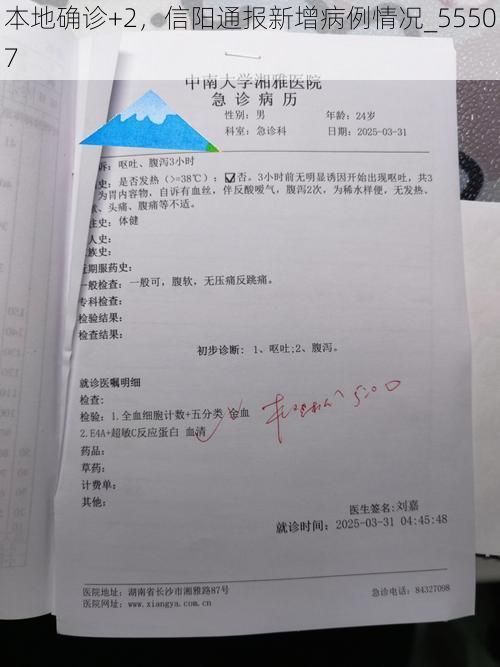 本地确诊+2，信阳通报新增病例情况_55507
中南大学湘雅医院
急诊病历
性别：男 年龄：24岁
科室：急诊科 日期：2025-03-31
诉：呕吐、腹泻3小时
史：是否发热（>=38℃）：☑否。3小时前无明显诱因开始出现呕吐，共3
为胃内容物，自诉有血丝，伴反酸嗳气，腹泻2次，为稀水样便，无发热、
、头痛、腹痛等不适。
往史：体健
人史：
族史：
近期服药史：
一般检查：一般可，腹软，无压痛反跳痛。
专科检查：
检验结果：
检查结果：
初步诊断：1、呕吐;2、腹泻。
就诊医嘱明细
检查：
检验：1.全血细胞计数+五分类 全血
2.E4A+超敏C反应蛋白 血清
药品：
草药：
计费单：
其他：
医生签名：刘嘉
就诊时间：2025-03-31 04:45:48
医院地址：湖南省长沙市湘雅路87号 急诊电话：84327098
医院网址：www.xiangya.com.cn